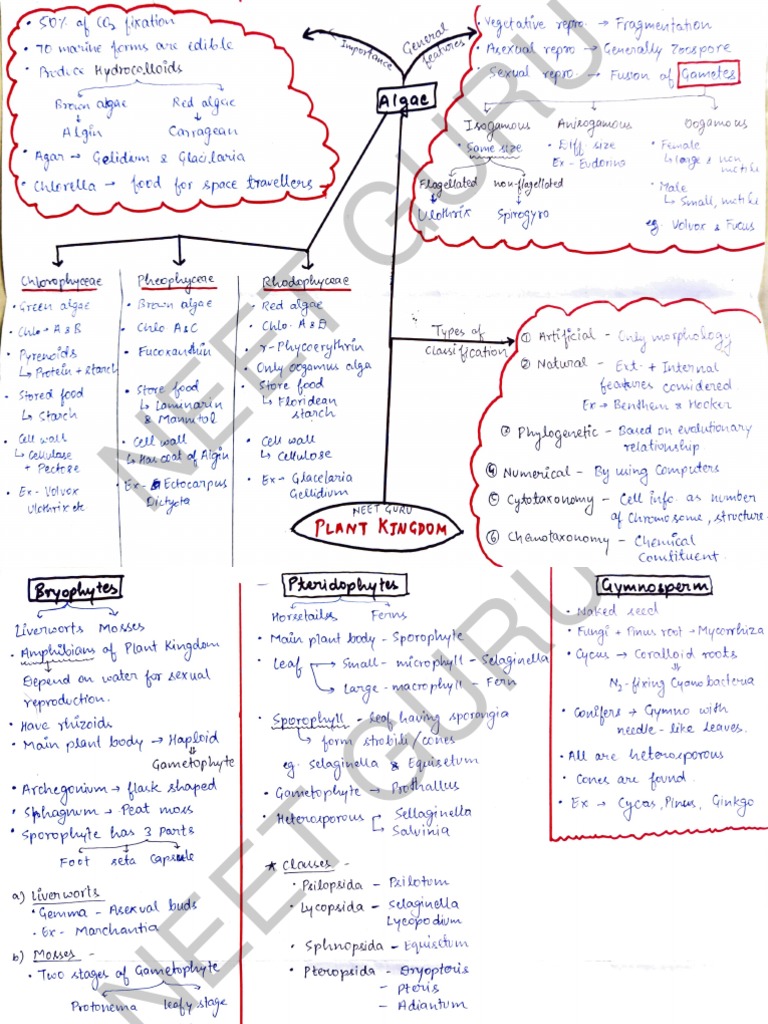 • 50% of CO2 fixation
• 70 marine forms are edible
• Produce Hydrocolloids
Brown algae Red algae
Algin Carragean
• Agar → Gelidium & Glacilaria
• Chlorella → food for space travellers
Importance
General features
Algae
• Vegetative repro. → Fragmentation
• Asexual repro → Generally Zoospore
• Sexual repro. → Fusion of Gametes
Isogamous Anisogamous Oogamous
• Same size
Flagellated non-flagellated
Ulothrix Spirogyro
• Diff. size
Ex - Eudorina
• Female
↳ large & non motile
• Male
↳ Small, motile
eg Volvox & Fucus
Chlorophyceae
• Green algae
• Chlo - A & B
• Pyrenoids
↳ Protein + starch
• Stored food
↳ Starch
• Cell wall
↳ Cellulose
+ Pectose
• Ex - Volvox
Ulothrix etc
Pheophyceae
• Brown algae
• Chlo A & C
• Fucoxanthin
• Store food
↳ Laminarin
& Mannitol
• Cell wall
↳ Has coat of Algin
• Ex - Ectocarpus
Dictyota
Rhodophyceae
• Red algae
• Chlo. A & D
• r-Phycoerythrin
• Only oogamus alga
• Store food
↳ Floridean
starch
• Cell wall
↳ Cellulose
• Ex → Glacelaria
Gellidium
Types of
classification
① Artificial - Only morphology
② Natural - Ext. + Internal
features considered
Ex → Benthem & Hocker
③ Phylogenetic - Based on evolutionary
relationship.
④ Numerical - By using computers
⑤ Cytotaxonomy - Cell info as number
of chromosome, structure
⑥ Chemotaxonomy - Chemical
Constituent
NEET GURU
PLANT KINGDOM
Bryophytes
Liverworts Mosses
• Amphibians of Plant Kingdom
Depend on water for sexual
reproduction.
• Have rhizoids
• Main plant body → Haploid
Gametophyte
• Archegonium → flask shaped
• Sphagnum → Peat moss
• Sporophyte has 3 parts
Foot seta Capsule
a) Liverworts
• Gemma - Asexual buds
• Ex - Marchantia
b) Mosses -
• Two stages of Gametophyte
Protonema leafy stage
- Pteridophytes
Horsetailes Ferns
• Main plant body - Sporophyte
• Leaf → Small - microphyll - Selaginella
→ Large - macrophyll - Fern
• Sporophyll - leaf having sporangia
↳ form strobili/cones
eg. Selaginella & Equisetum
• Gametophyte → Prothallus
• Heterosporous Sellaginella
Salvinia
★ Classes -
• Psilopsida - Psilotum
• Lycopsida - Selaginella
Lycopodium
• Sphnopsida - Equisetum
• Pteropsida - Dryopteris
- Pteris
- Adiantum
Gymnosperm
• Naked seed
• Fungi + Pinus root → Mycorrhiza
• Cycus → Coralloid roots
N2-fixing Cyanobacteria
• Conifers → Gymno with
needle-like leaves.
• All are heterosporous
• Cones are found.
• Ex → Cycas, Pinus, Ginkgo
NEET GURU
NEET GURU